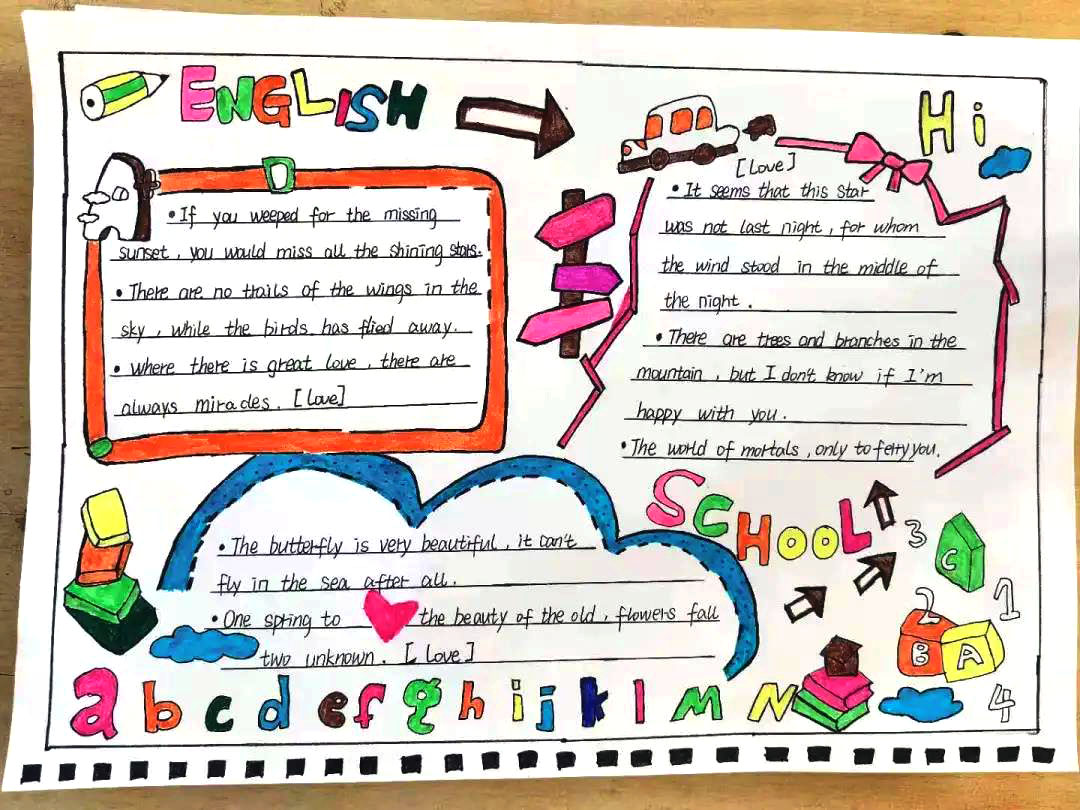 ENGLISH
Hi
D
• If you weeped for the missing
sunset, you would miss all the shining stars.
• There are no trails of the wings in the
sky, while the birds has flied away.
• where there is great love, there are
always miracles. [Love]
[Love]
• It seems that this star
was not last night, for whom
the wind stood in the middle of
the night.
• There are trees and branches in the
mountain, but I don't know if I'm
happy with you.
• The world of mortals, only to ferry you.
SCHOOL
• The butterfly is very beautiful, it can't
fly in the sea after all.
• One spring to the beauty of the old, flowers fall
two unknown. [Love]
3
C
2
1
B A
4
a b c d e f g h i j k l M N